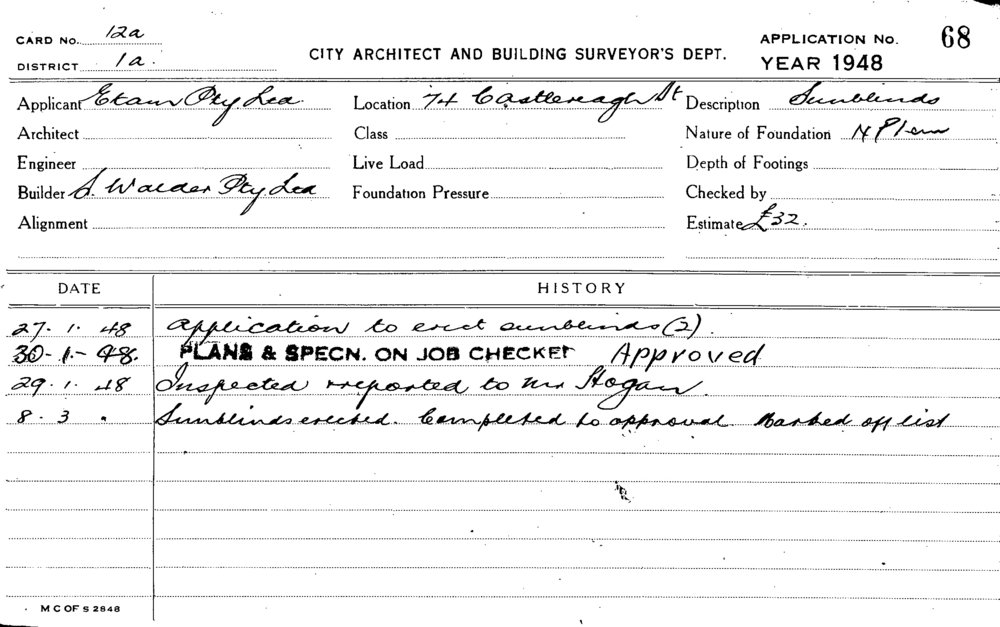 CARD No. 12a
DISTRICT 1a.
CITY ARCHITECT AND BUILDING SURVEYOR'S DEPT.
APPLICATION No. 68
YEAR 1948
Applicant Etam Pty Ltd. Location 74 Castlereagh St Description Sunblinds
Architect Class Nature of Foundation
Engineer Live Load Depth of Footings
Builder S. Walder Pty. Ltd Foundation Pressure Checked by
Alignment Estimate £32.
DATE HISTORY
27. 1. 48 Application to erect sunblinds (2).
30-1-48. PLANS & SPECN. ON JOB CHECKET Approved
29.1.48 Inspected & reported to Mr Hogan.
8. 3 " Sunblinds erected. Completed to approval. Marked off list
M C OF S 2848